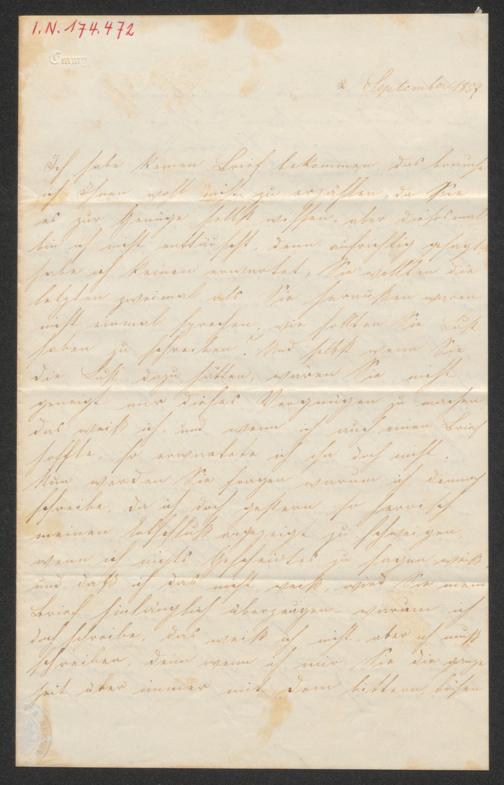 I.N. 174.472
Emmy
2 September 1859
Ich habe keinen Brief bekommen, das brauche
ich Ihnen wohl nicht zu erzählen, da Sie
es zur Genüge selbst wissen, aber diesesmal
bin ich nicht enttäuscht, denn aufrichtig gesagt
habe ich keinen erwartet, Sie wollten die
letzten zweimal als Sie waren
nicht einmal sprechen, wie sollten Sie Lust
haben zu schreiben? Und selbst wenn Sie
die Lust dazu hätten, waren Sie nicht
geneigt mir dieses Vergnügen zu machen
das weiß ich, und wenn ich auch einen Brief
hoffte, so erwartete ich ihn doch nicht.
Nun werden Sie fragen warum ich dennoch
schreibe, da ich doch gestern so heroisch
meinen Entschluß angezeigt zu schweigen,
wenn ich nichts Gescheidtes zu sagen weiß
und daß ich das nicht weiß, wird Sie mein
Brief hinlänglich überzeugen. warum ich
doch schreibe, das weiß ich nicht, aber ich muß
schreiben, denn wenn ich mir Sie die ganze
Zeit über immer mit dem bittern bösen